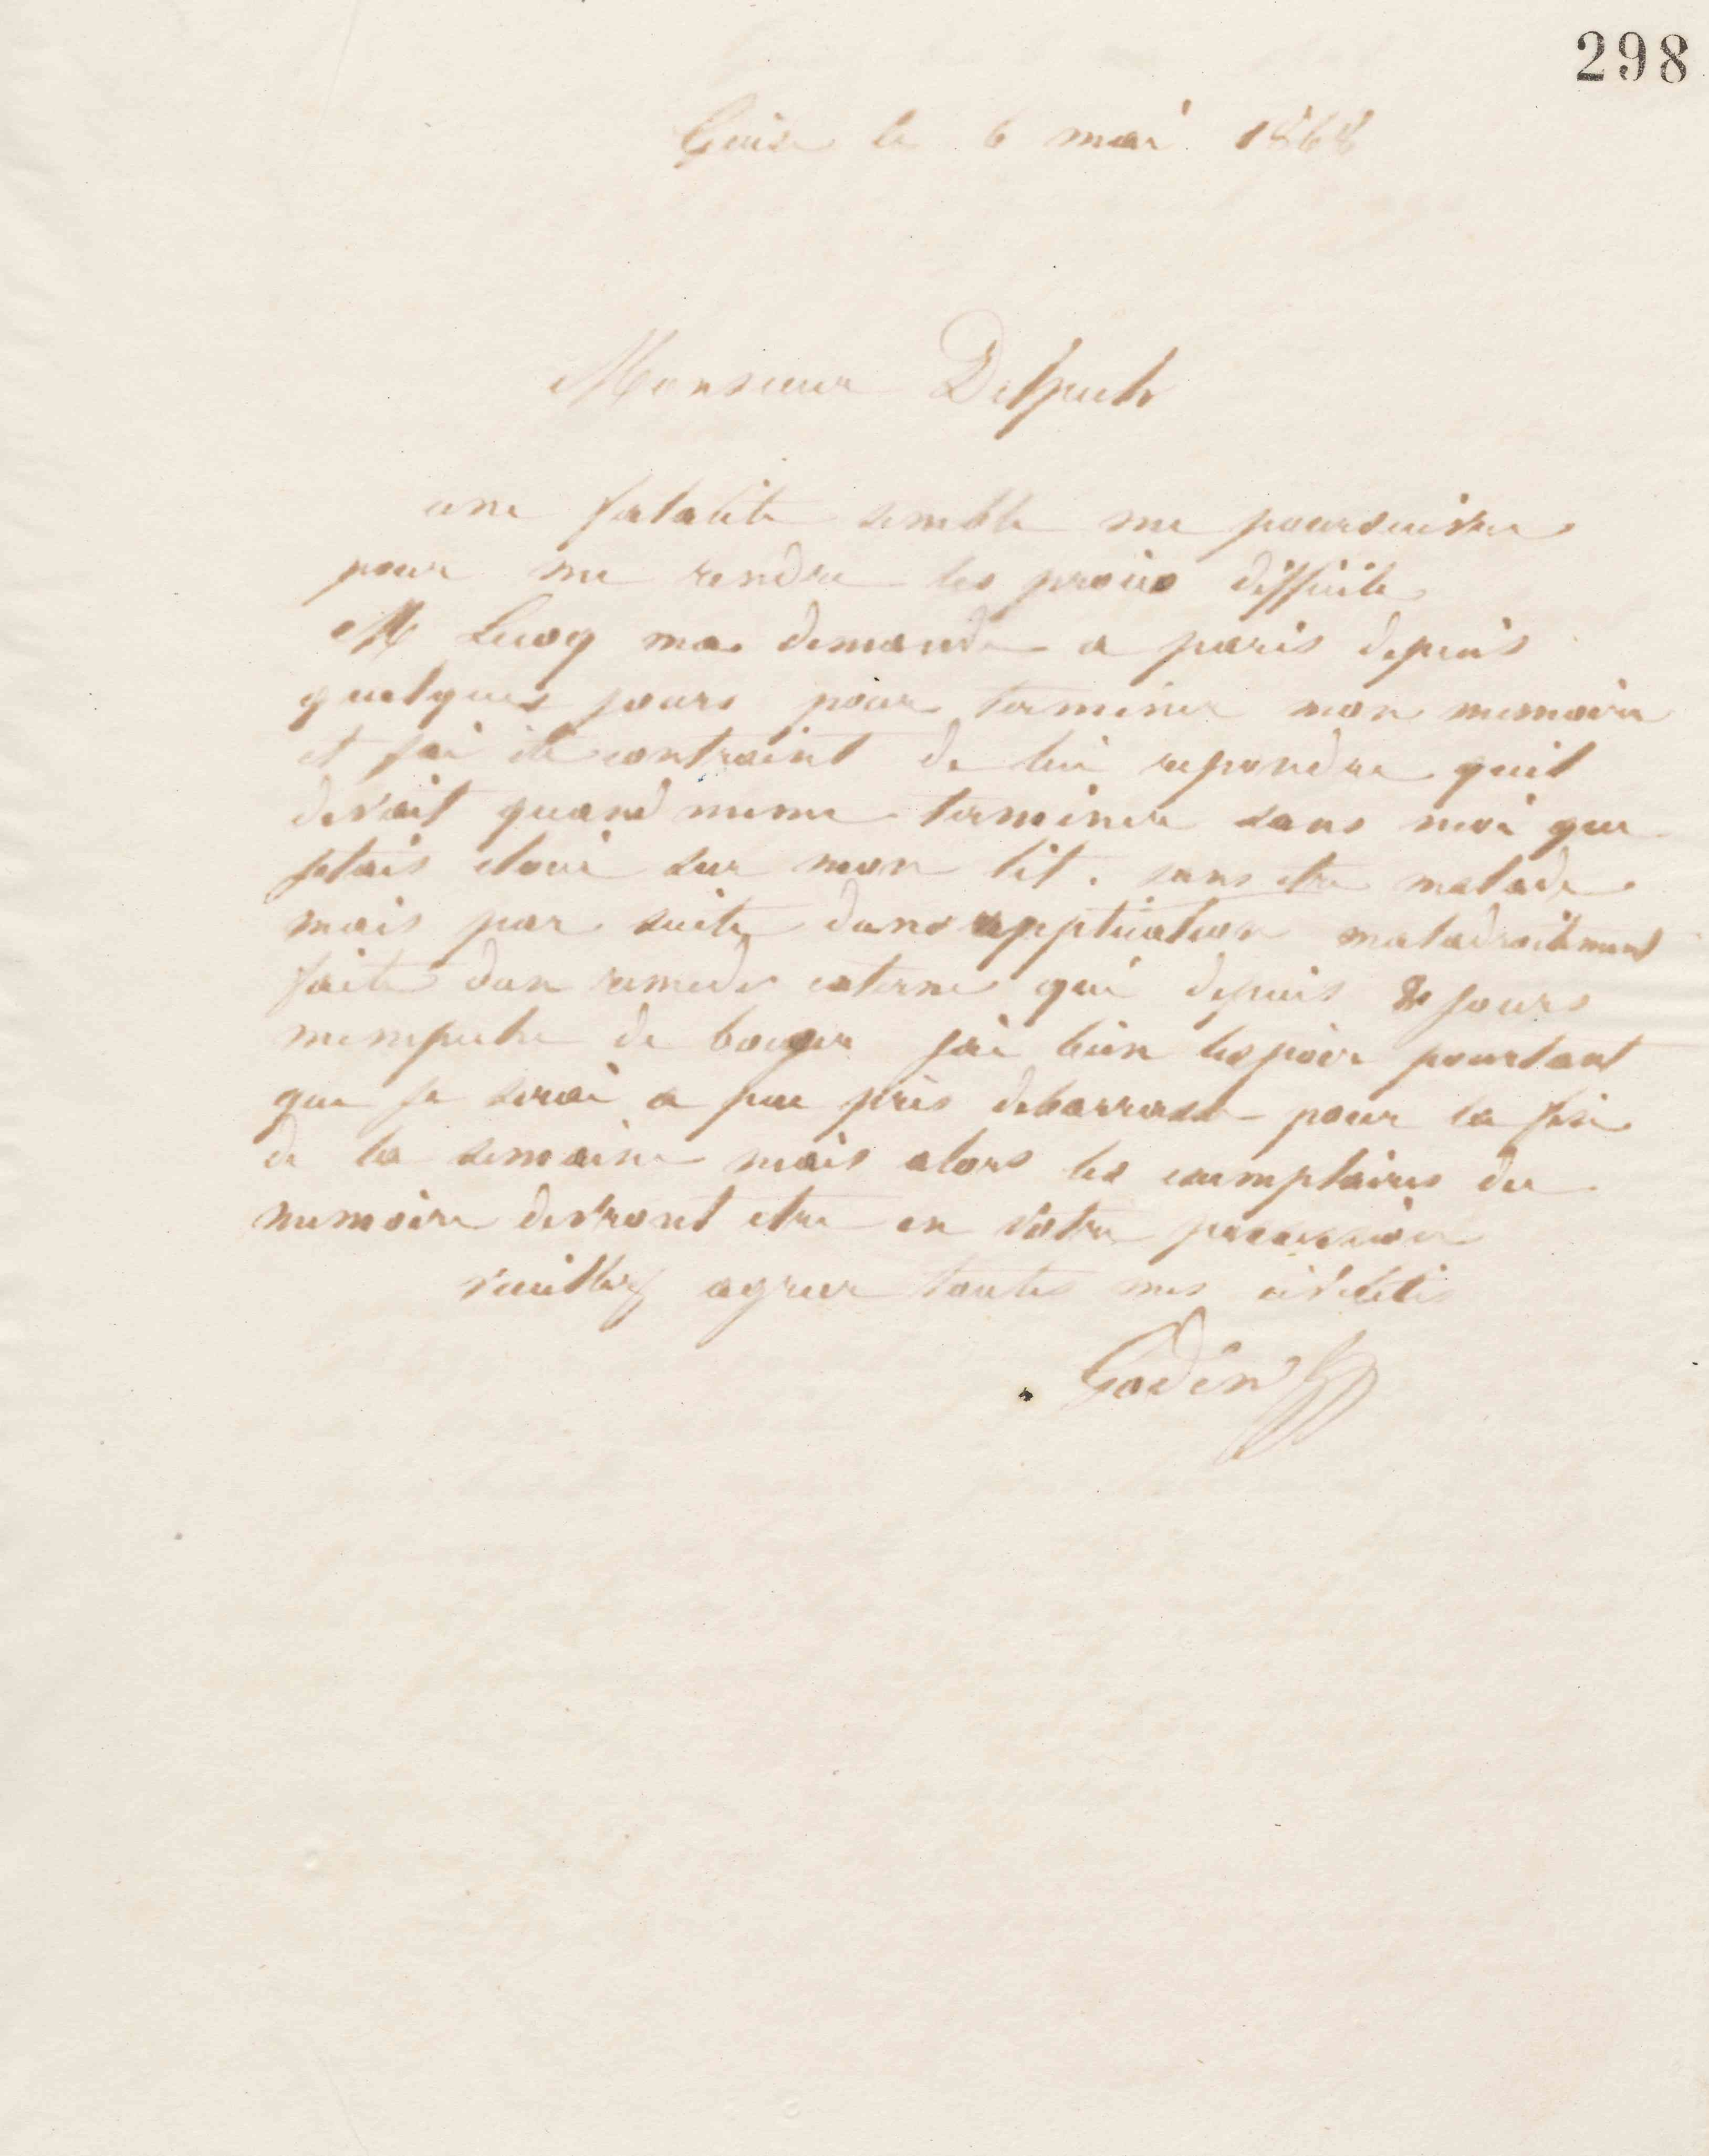 298
Guise le 6 mai 1868
Monsieur Delpech
une fatalité semble me poursuivre
pour me rendre les procès difficile
Mr Lecoq ma demandé a paris depuis
quelques jours pour terminer mon memoire
et jai été contraint de lui repondre quil
devait quand meme terminer sans moi que
jetais cloué sur mon lit. sans etre malade
mais par suite dune application maladroitement
faite dun remede externe qui depuis 8 jours
mempeche de bouger jai bien lespoir pourtant
que je serai a peu près debarrassé pour la fin
de la semaine mais alors les exemplaires du
memoire devront etre en votre possession
veuillez agreer toutes mes civilités
Godin